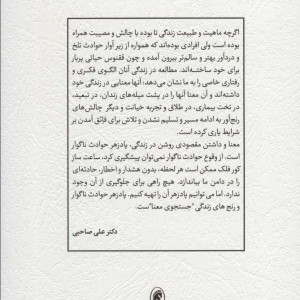 اگرچه ماهیت و طبیعت زندگی تا بوده با چالش و مصیبت همراه
بوده است ولی افرادی بوده‌اند که همواره از زیر آوار حوادث تلخ
و دردآور بهتر و سالم‌تر بیرون آمده و چون ققنوس حیاتی پربار
برای خود ساخته‌اند. مطالعه در زندگی آنان الگوی فکری و
رفتاری خاصی را به ما نشان می‌دهد، آنها معنایی در زندگی خود
داشته‌اند و آن معنا آنها را در پشت میله‌های زندان، در تبعید،
در تخت بیماری، در طلاق و تجربه خیانت و دیگر چالش‌های
رنج‌آور به ادامه مسیر و تسلیم نشدن و تلاش برای فائق آمدن بر
شرایط یاری کرده است.
معنا و داشتن مقصودی روشن در زندگی، پادزهر حوادث ناگوار
است. از وقوع حوادث ناگوار نمی‌توان پیشگیری کرد، ساعت ساز
کور فلک ممکن است هر لحظه، بدون هشدار و اخطار، حادثه‌ای
را در دامن ما بیاندازد. هیچ راهی برای جلوگیری از آن وجود
ندارد. اما می‌توانیم پادزهر آن را تهیه کنیم. پادزهر حوادث ناگوار
و رنج های زندگی "جستجوی معنا"ست.
دکتر علی صاحبی